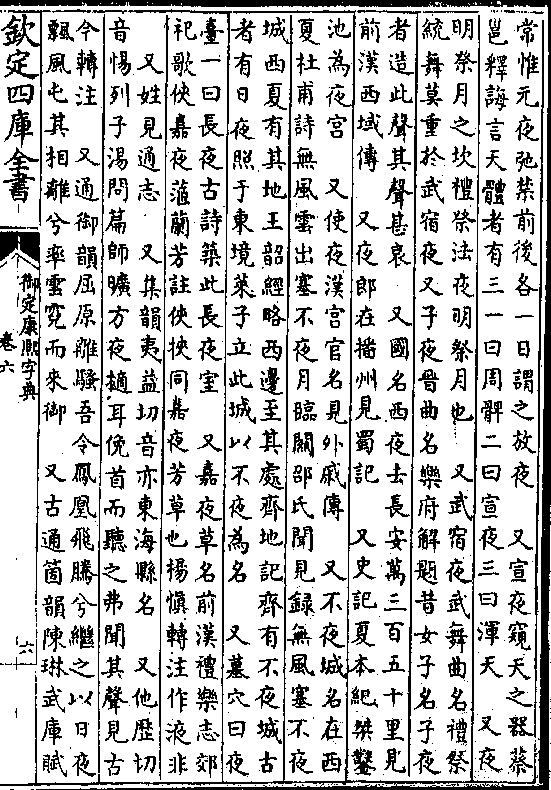 常惟元夜弛禁前後各一日謂之放夜　又宣夜窺天之器蔡
邕釋誨言天體者有三一曰周髀二曰宣夜三曰渾天　又夜
明祭月之坎禮祭法夜明祭月也　又武宿夜武舞曲名禮祭
統舞莫重於武宿夜　又子夜晉曲名樂府解題昔女子名子夜
者造此聲其聲甚哀　又國名西夜去長安萬三百五十里見
前漢西域傳　又夜郎在播州見蜀記　又史記夏本紀桀鑿
池為夜宮　又使夜漢宮官名見外戚傳　又不夜城名在西
夏杜甫詩無風雲出塞不夜月臨關邵氏聞見録無風塞不夜
城西夏有其地王韶經略西邊至其處齊地記齊有不夜城古
者有日夜照于東境萊子立此城以不夜為名　又墓穴曰夜
臺一曰長夜古詩築此長夜室　又嘉夜草名前漢禮樂志郊
祀歌俠嘉夜茝蘭芳註俠挾同嘉夜芳草也楊慎轉注作液非
　又姓見通志　又集韻夷益切音亦東海縣名　又他歷切
音惕列子湯問篇師曠方夜擿耳俛首而聽之弗聞其聲見古
今轉注　又通御韻屈原離騷吾令鳳凰飛騰兮繼之以日夜
飄風屯其相離兮率雲霓而來御　又古通箇韻陳琳武庫賦
欽定四庫全書
御定康熙字典
卷六
六